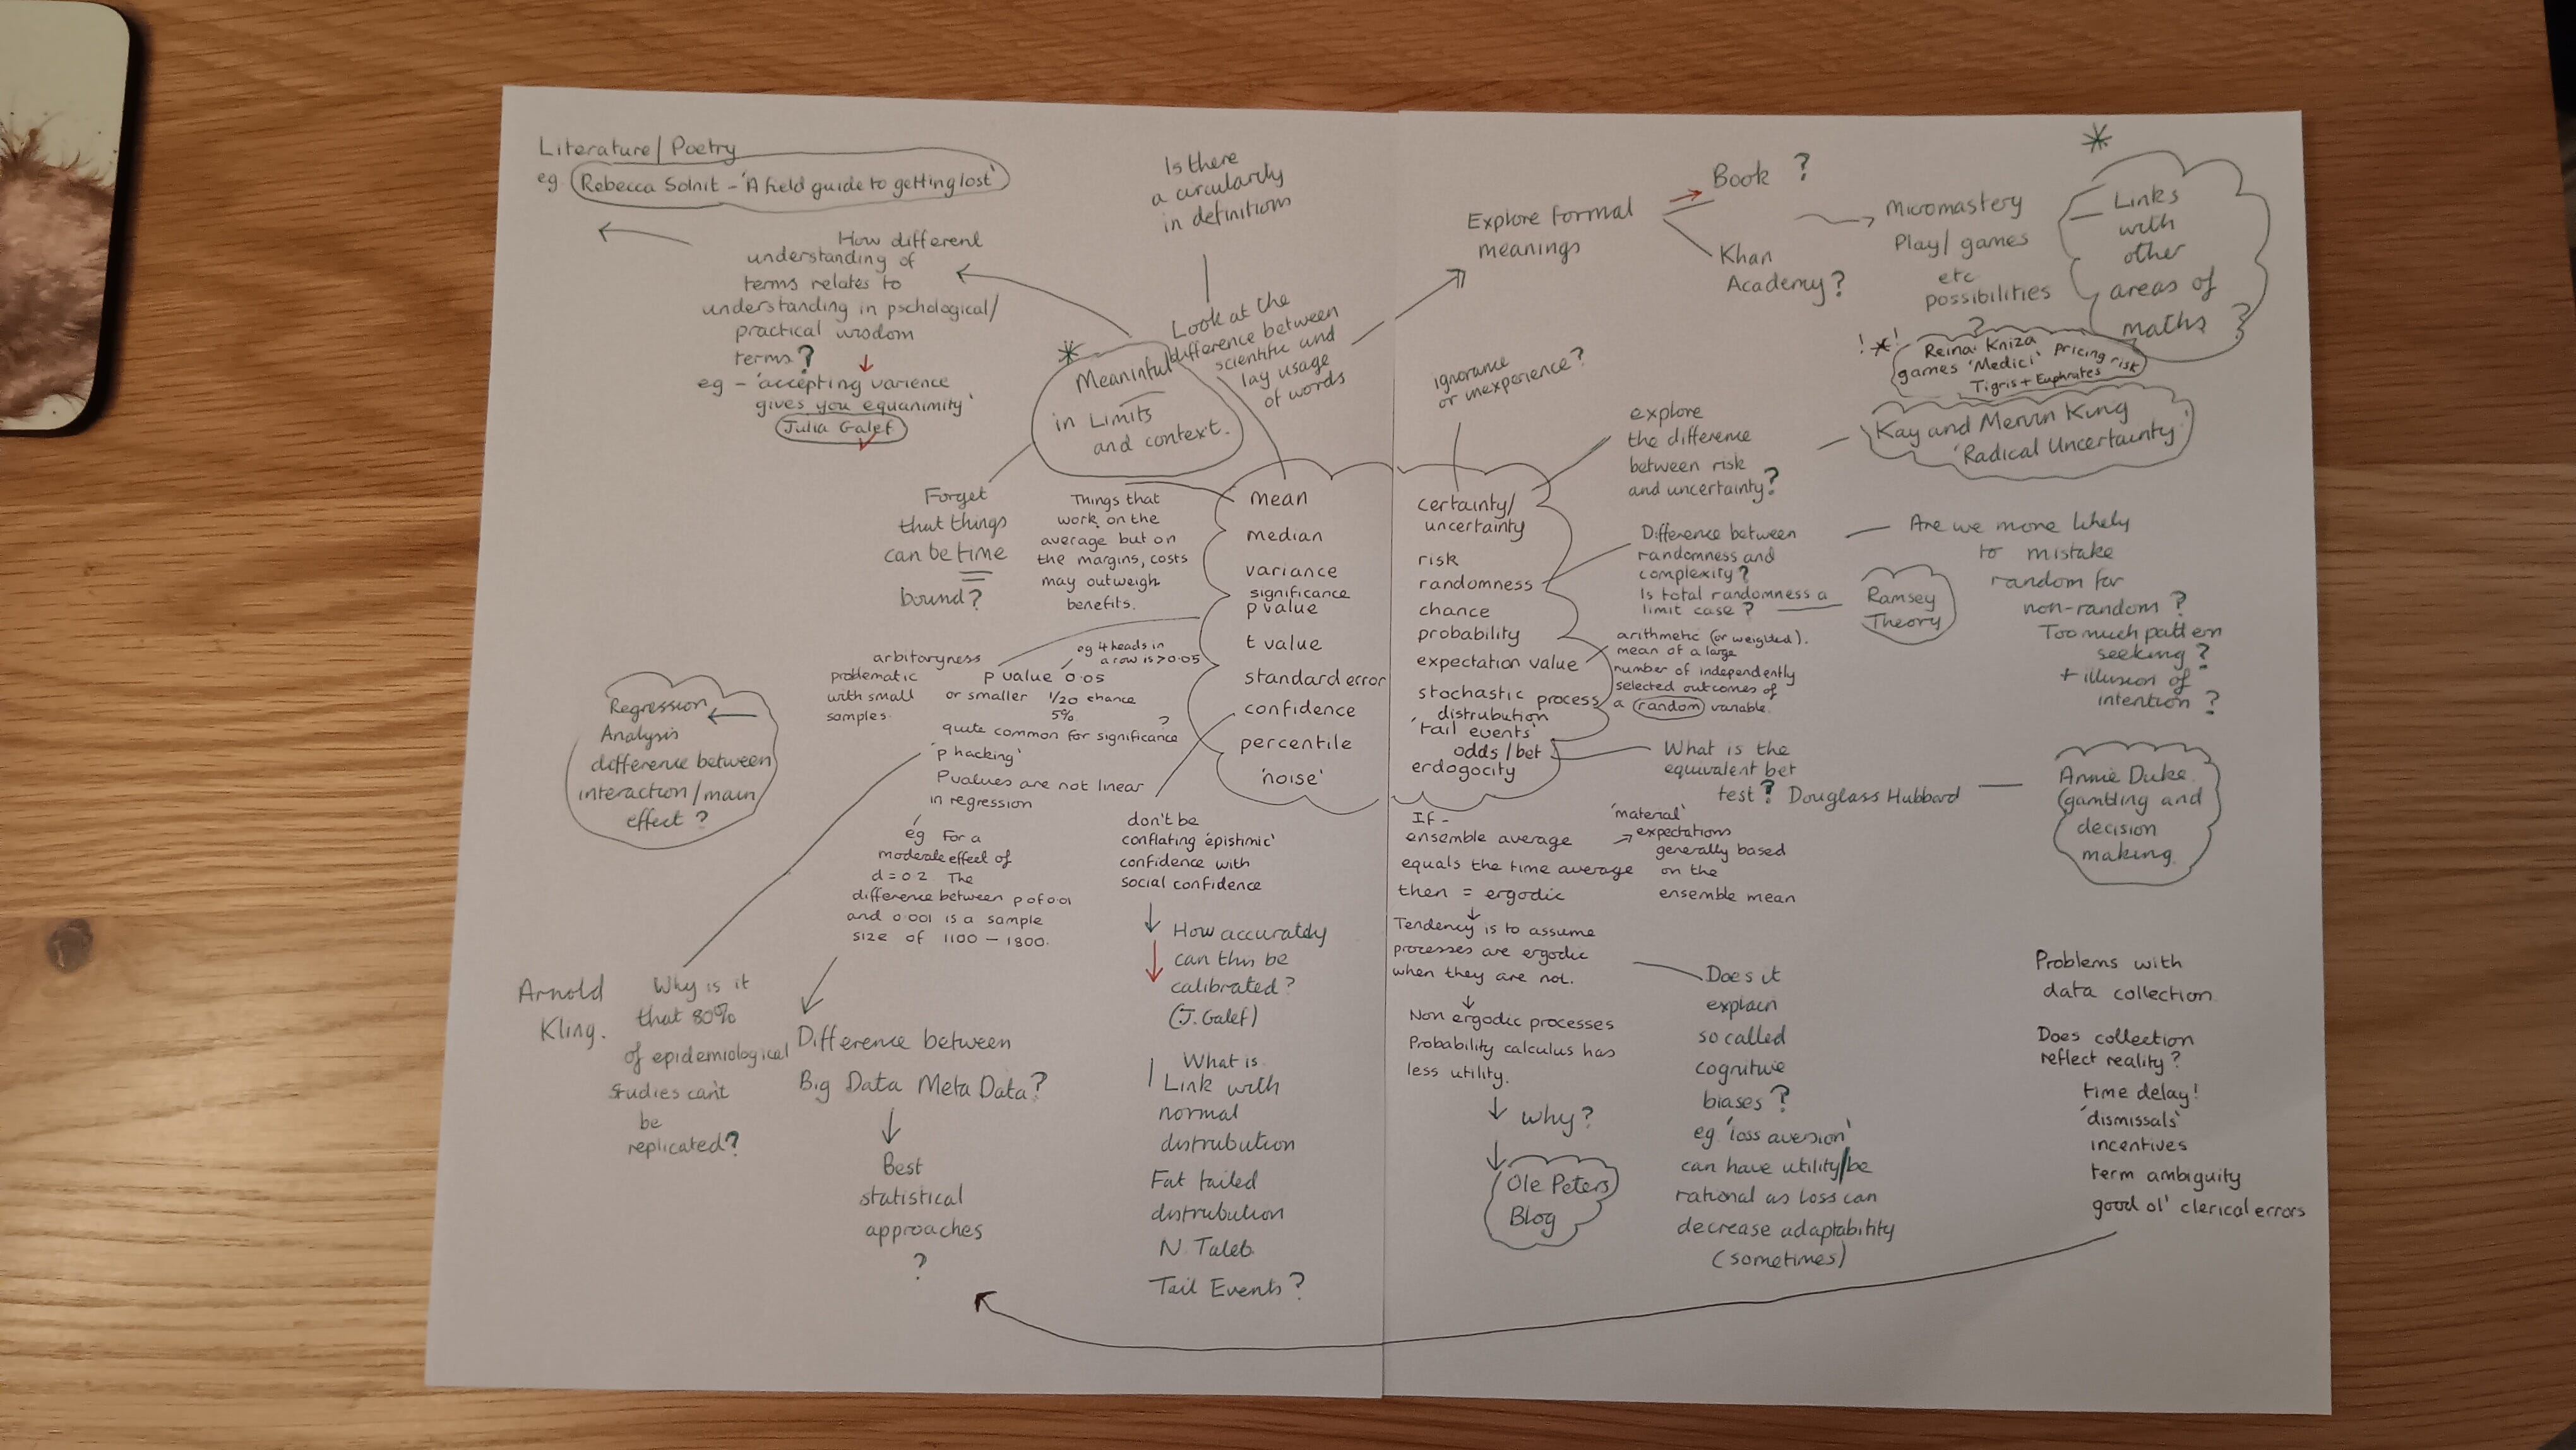 Literature/Poetry
eg Rebecca Solnit - 'A field guide to getting lost'
How different
understanding of
terms relates to
understanding in pschological/
practical wisdom
terms?
eg - 'accepting varience
gives you equanimity'
Julia Galef
Is there
a circularity
in definitions
Look at the
difference between
scientific and
lay usage
of words
Meaninful
in Limits
and context.
Explore formal
meanings
Book ?
Khan
Academy?
Micromastery
Play/games
etc
possibilities
?
Links
with
other
areas of
maths ?
! * !
Reina Kniza
games 'Medici' Pricing risk
Tigris + Euphrates
Kay and Mervin King
'Radical Uncertainty'
ignorance
or inexperience?
explore
the difference
between risk
and uncertainty?
Forget
that things
can be time
bound?
Things that
work on the
average but on
the margins, costs
may outweigh
benefits.
mean
median
variance
significance
p value
t value
standard error
confidence
percentile
'noise'
certainty/
uncertainty
risk
randomness
chance
probability
expectation value
stochastic process
distrubution
'tail events'
odds/bet
erdogocity
Difference between
randomness and
complexity?
Is total randomness a
limit case?
Ramsey
Theory
Are we more likely
to mistake
random for
non-random?
Too much pattern
seeking?
+ illusion of
intention?
arithmetic (or weighted).
mean of a large
number of independently
selected outcomes of
a random variable.
What is the
equivalent bet
test? Douglass Hubbard
Annie Duke
(gambling and
decision
making.
arbitaryness
problematic
with small
samples.
eg 4 heads in
a row is > 0.05
p value 0.05
or smaller 1/20 chance
5%
quite common for significance ?
'p hacking'
Pvalues are not linear
in regression
eg For a
moderate effect of
d = 0.2 The
difference between p of 0.01
and 0.001 is a sample
size of 1100 - 1800.
Regression
Analysis
difference between
interaction/main
effect?
Arnold
Kling.
Why is it
that 80%
of epidemiological
studies can't
be
replicated?
Difference between
Big Data Meta Data?
Best
statistical
approaches
?
don't be
conflating 'epistmic'
confidence with
social confidence
How accurately
can this be
calibrated?
(J. Galef)
What is
Link with
normal
distrubution
Fat tailed
distrubution
N. Taleb.
Tail Events?
If -
ensemble average
equals the time average
then = ergodic
'material'
expectations
generally based
on the
ensemble mean
Tendency is to assume
processes are ergodic
when they are not.
Non ergodic processes
Probability calculus has
less utility.
Why?
Ole Peters
Blog
Does it
explain
so called
cognitive
biases?
eg 'loss aversion'
can have utility/be
rational as loss can
decrease adaptability
(sometimes)
Problems with
data collection
Does collection
reflect reality?
time delay!
'dismissals'
incentives
term ambiguity
good ol' clerical errors